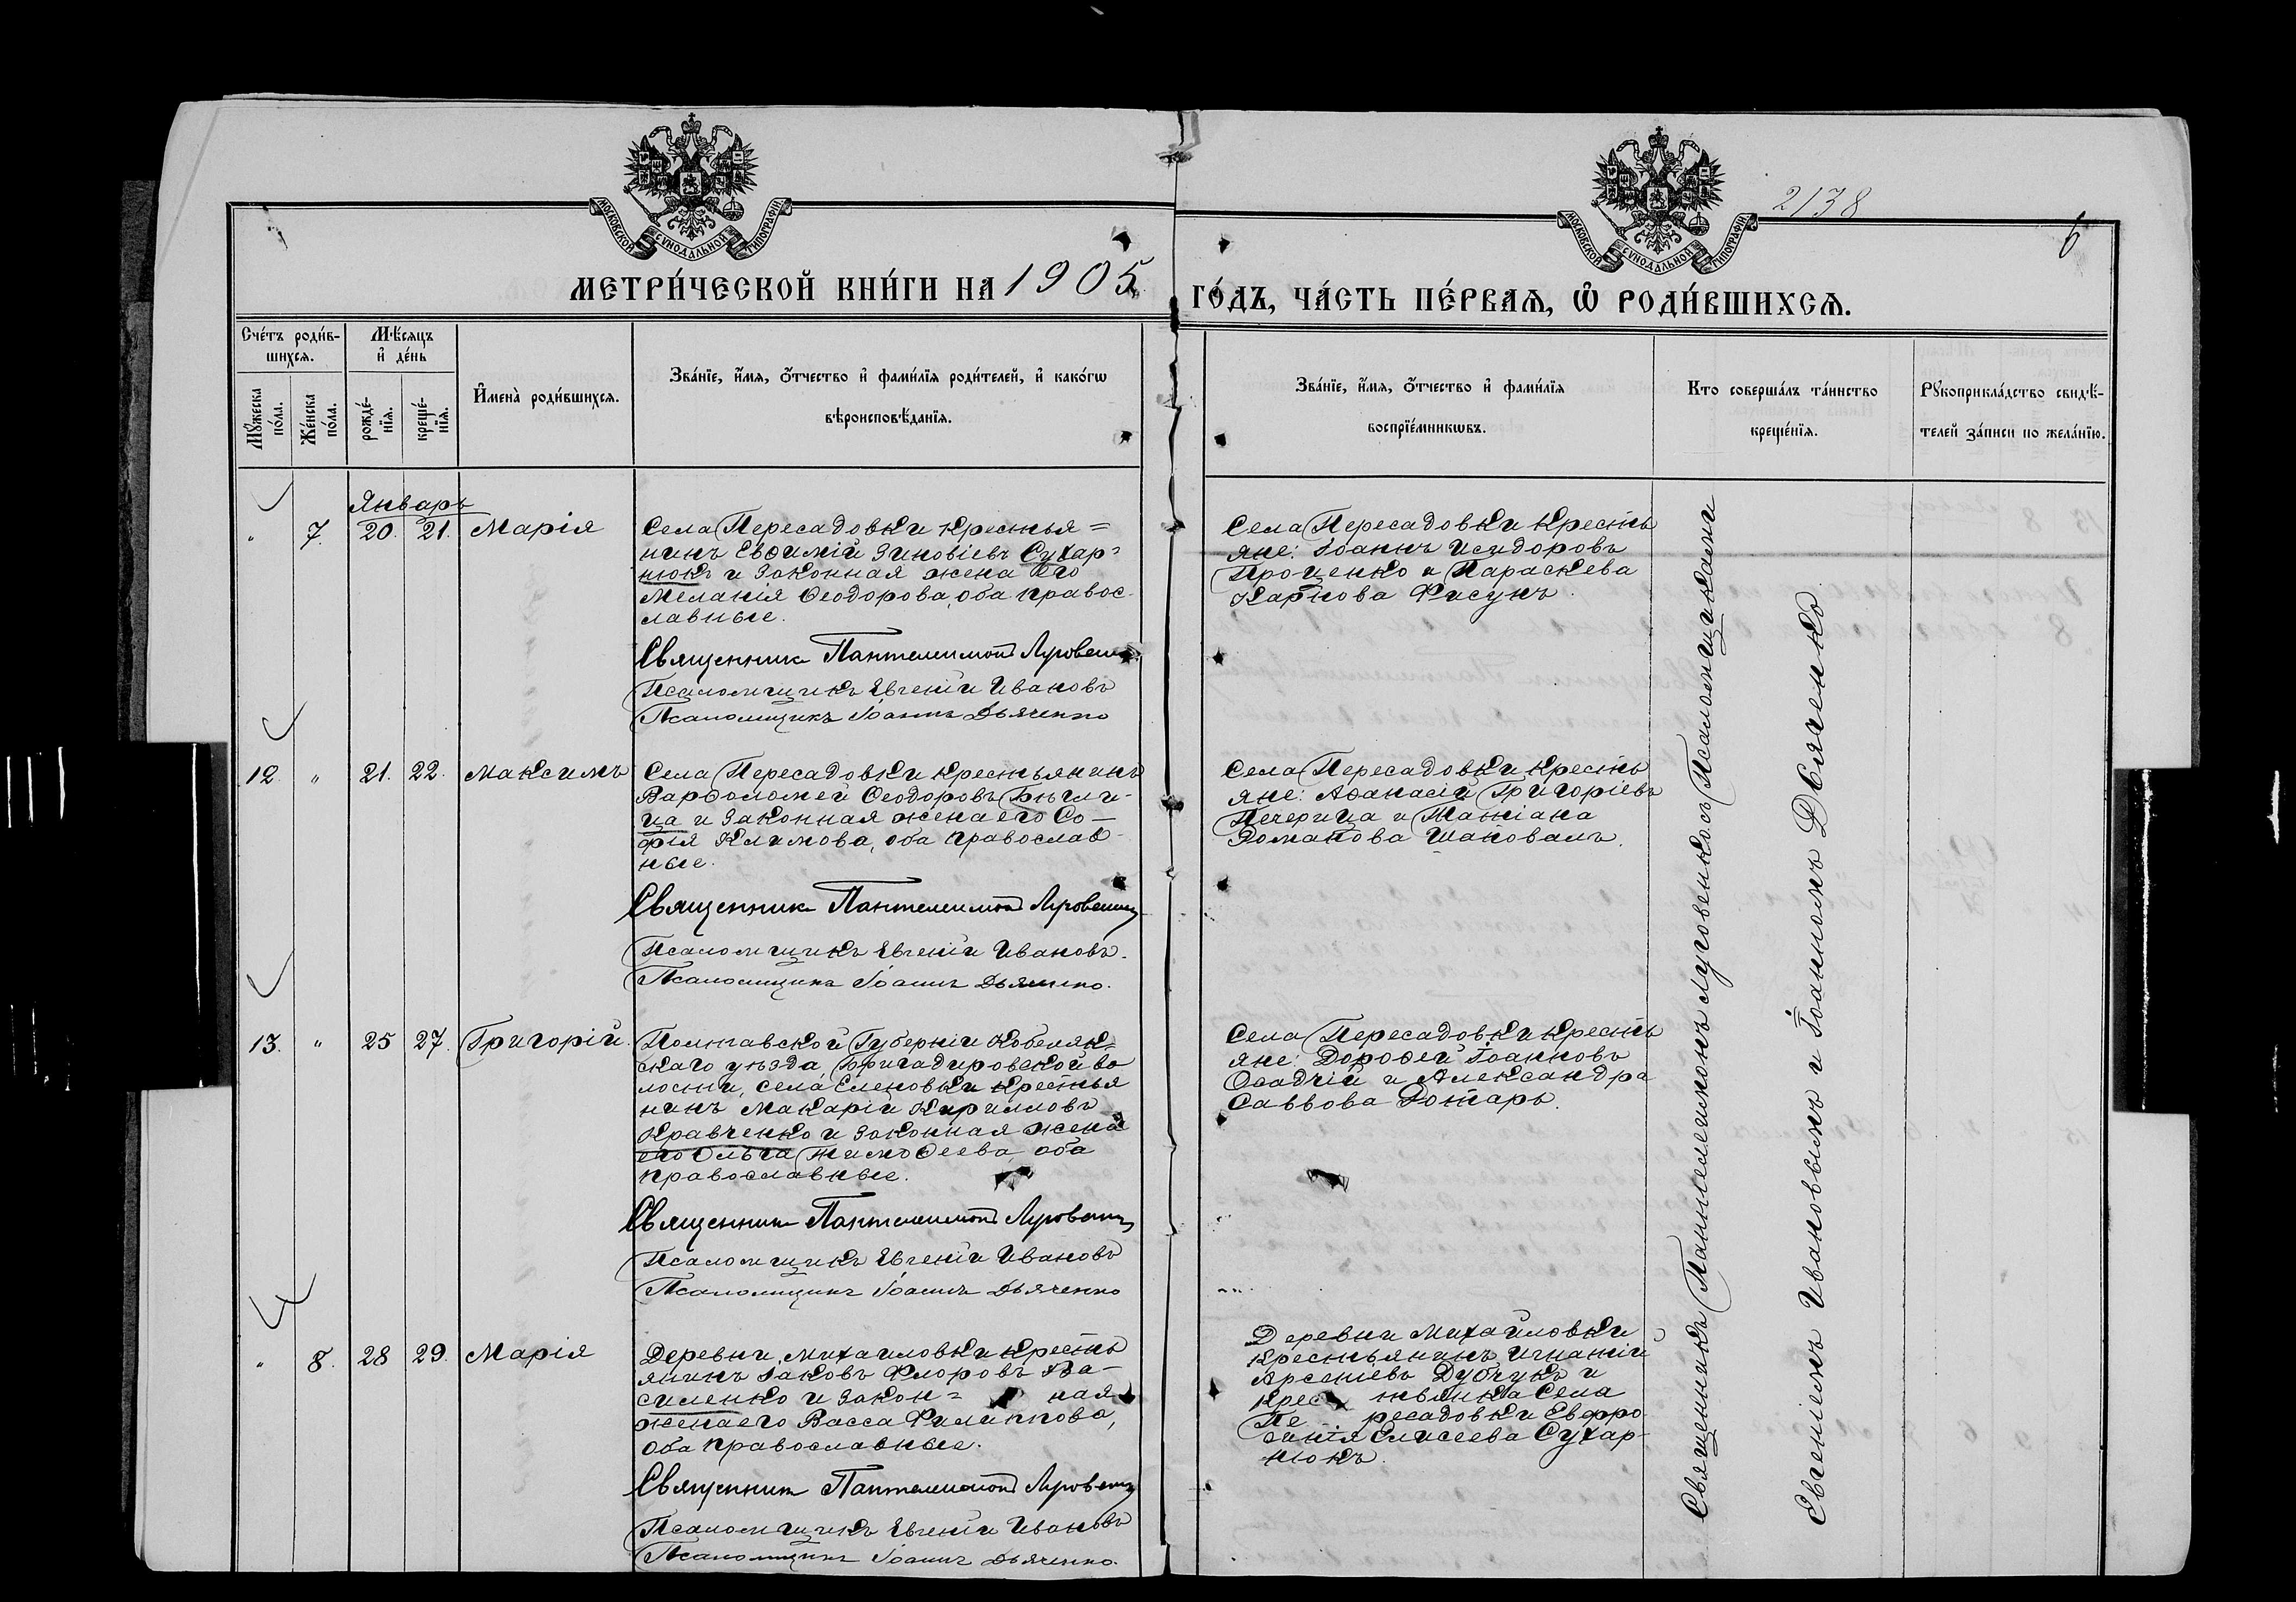 МОСКОВСКОЙ СѴНОДАЛЬНОЙ ТИПОГРАФІИ
МОСКОВСКОЙ СѴНОДАЛЬНОЙ ТИПОГРАФІИ
2138
6
МЕТРИ́ЧЕСКОЙ КНИ́ГИ НА 1905
ГО́ДЪ, ЧА́СТЬ ПЕ́РВАЯ, Ѡ҆ РОДИ́ВШИХСЯ.
Сче́тъ роди́в-
шихся.
Мꙋ́жеска по́ла.
Же́нска по́ла.
Мѣ́сяцъ
и҆ де́нь
рожде́-
нїя.
креще́-
нїя.
И҆мена̀ роди́вшихся.
Зва́нїе, и҆́мя, ѻ҆́тчество и҆ фами́лїя роди́телей, и҆ како́гѡ
вѣроисповѣ́данїя.
Зва́нїе, и҆́мя, ѻ҆́тчество и҆ фами́лїя
воспрїе́мникѡвъ.
Кто соверша́лъ та́инство
креще́нїя.
Рꙋкоприкла́дство свидѣ́-
телей за́писи по жела́нїю.
Январь
" 7. 20. 21. Марія
Села Пересадовки крестья=
нинъ Евѳимій Зиновіевъ Сухар=
нюкъ и законная жена его
Меланія Ѳеодорова, оба правос-
лавные.
Священникъ Пантелеимонъ Луговенко
Псаломщикъ Евгеній Ивановъ
Псаломщикъ Іоаннъ Дьяченко
Села Пересадовки кресть
яне: Іоаннъ Исидоровъ
Проценко и Параскева
Карпова Фисунъ.
12. " 21. 22. Максимъ
Села Пересадовки крестьянинъ
Варѳоломей Ѳеодоровъ Бѣгли-
ца и законная жена его Со-
фія Климова, оба православ-
ные.
Священникъ Пантелеимонъ Луговенко
Псаломщикъ Евгеній Ивановъ.
Псаломщикъ Іоаннъ Дьяченко.
Села Пересадовки кресть
яне: Аѳанасій Григоріевъ
Печерица и Татіана
Романова Шаповалъ.
13. " 25 27. Григорій.
Полтавской Губерніи Кобеляк=
скаго уѣзда, Бригадировской во
лости, села Еленовки крестья
нинъ Макарій Кирилловъ
Кравченко и законная жена
его Ольга Тимоѳеева, оба
православные.
Священникъ Пантелеимонъ Луговенко
Псаломщикъ Евгеній Ивановъ
Псаломщикъ Іоаннъ Дьяченко
Села Пересадовки кресть
яне: Дороѳей Іоанновъ
Осадчій и Александра
Саввова Ротарь.
" 8. 28 29. Марія
Деревни Михаиловки кресть
янинъ Іаковъ Флоровъ Ва-
силенко и закон= ная
жена его Васса Филиппова,
оба православные.
Священникъ Пантелеимонъ Луговенко
Псаломщикъ Евгеній Ивановъ
Псаломщикъ Іоаннъ Дьяченко.
Деревни Михайловки
крестьянинъ Игнатій
Арсеніевъ Дубчукъ и
крес тьянка Села
Пе ресадовки Евфро
синія Елисеева Сухар-
нюкъ.
Священникъ Пантелеимонъ Луговенко съ Псаломщиками
Евгеніемъ Ивановымъ и Іоанномъ Дьяченко